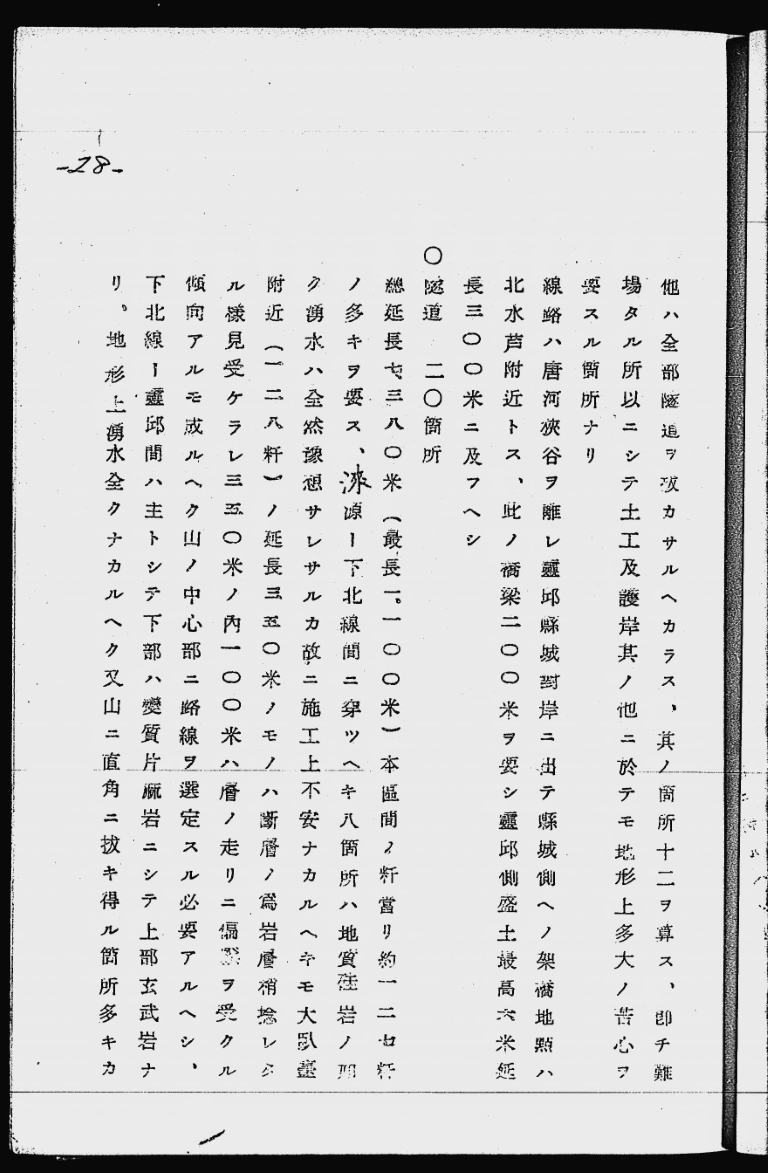 -28-
他ハ全部隧道ヲ拔カサルヘカラス、其ノ箇所十二ヲ算ス、卽チ難
場タル所以ニシテ土工及護岸其ノ他ニ於テモ地形上多大ノ苦心ヲ
要スル箇所ナリ
線路ハ唐河峽谷ヲ離レ靈邱縣城對岸ニ出テ縣城側ヘノ架橋地點ハ
北水芦附近トス、此ノ橋梁二〇〇米ヲ要シ靈邱側盛土最高六米延
長三〇〇米ニ及フヘシ
〇隧道 二〇箇所
總延長七、三八〇米(最長一。一〇〇米)本區間ノ粁當リ約一二セ粁
ノ多キヲ要ス、淶源ー下北線間ニ穿ツヘキ八箇所ハ地質硅岩ノ
ク湧水ハ全然豫想サレサルカ故ニ施工上不安ナカルヘキモ大臥臺
附近(一二八粁)ノ延長三五〇米ノモノハ斷層ノ爲岩層稍捻レタ
ル樣見受ケラレ三五〇米ノ內一〇〇米ハ層ノ走リニ偏ヲ受クル
傾向アルモ成ルヘク山ノ中心部ニ路線ヲ選定スル必要アルヘシ、
下北線ー靈邱間ハ主トシテ下部ハ變質片麻岩ニシテ上部玄武岩ナ
リ、地形上湧水全クナカルヘク又山ニ直角ニ拔キ得ル箇所多キカ